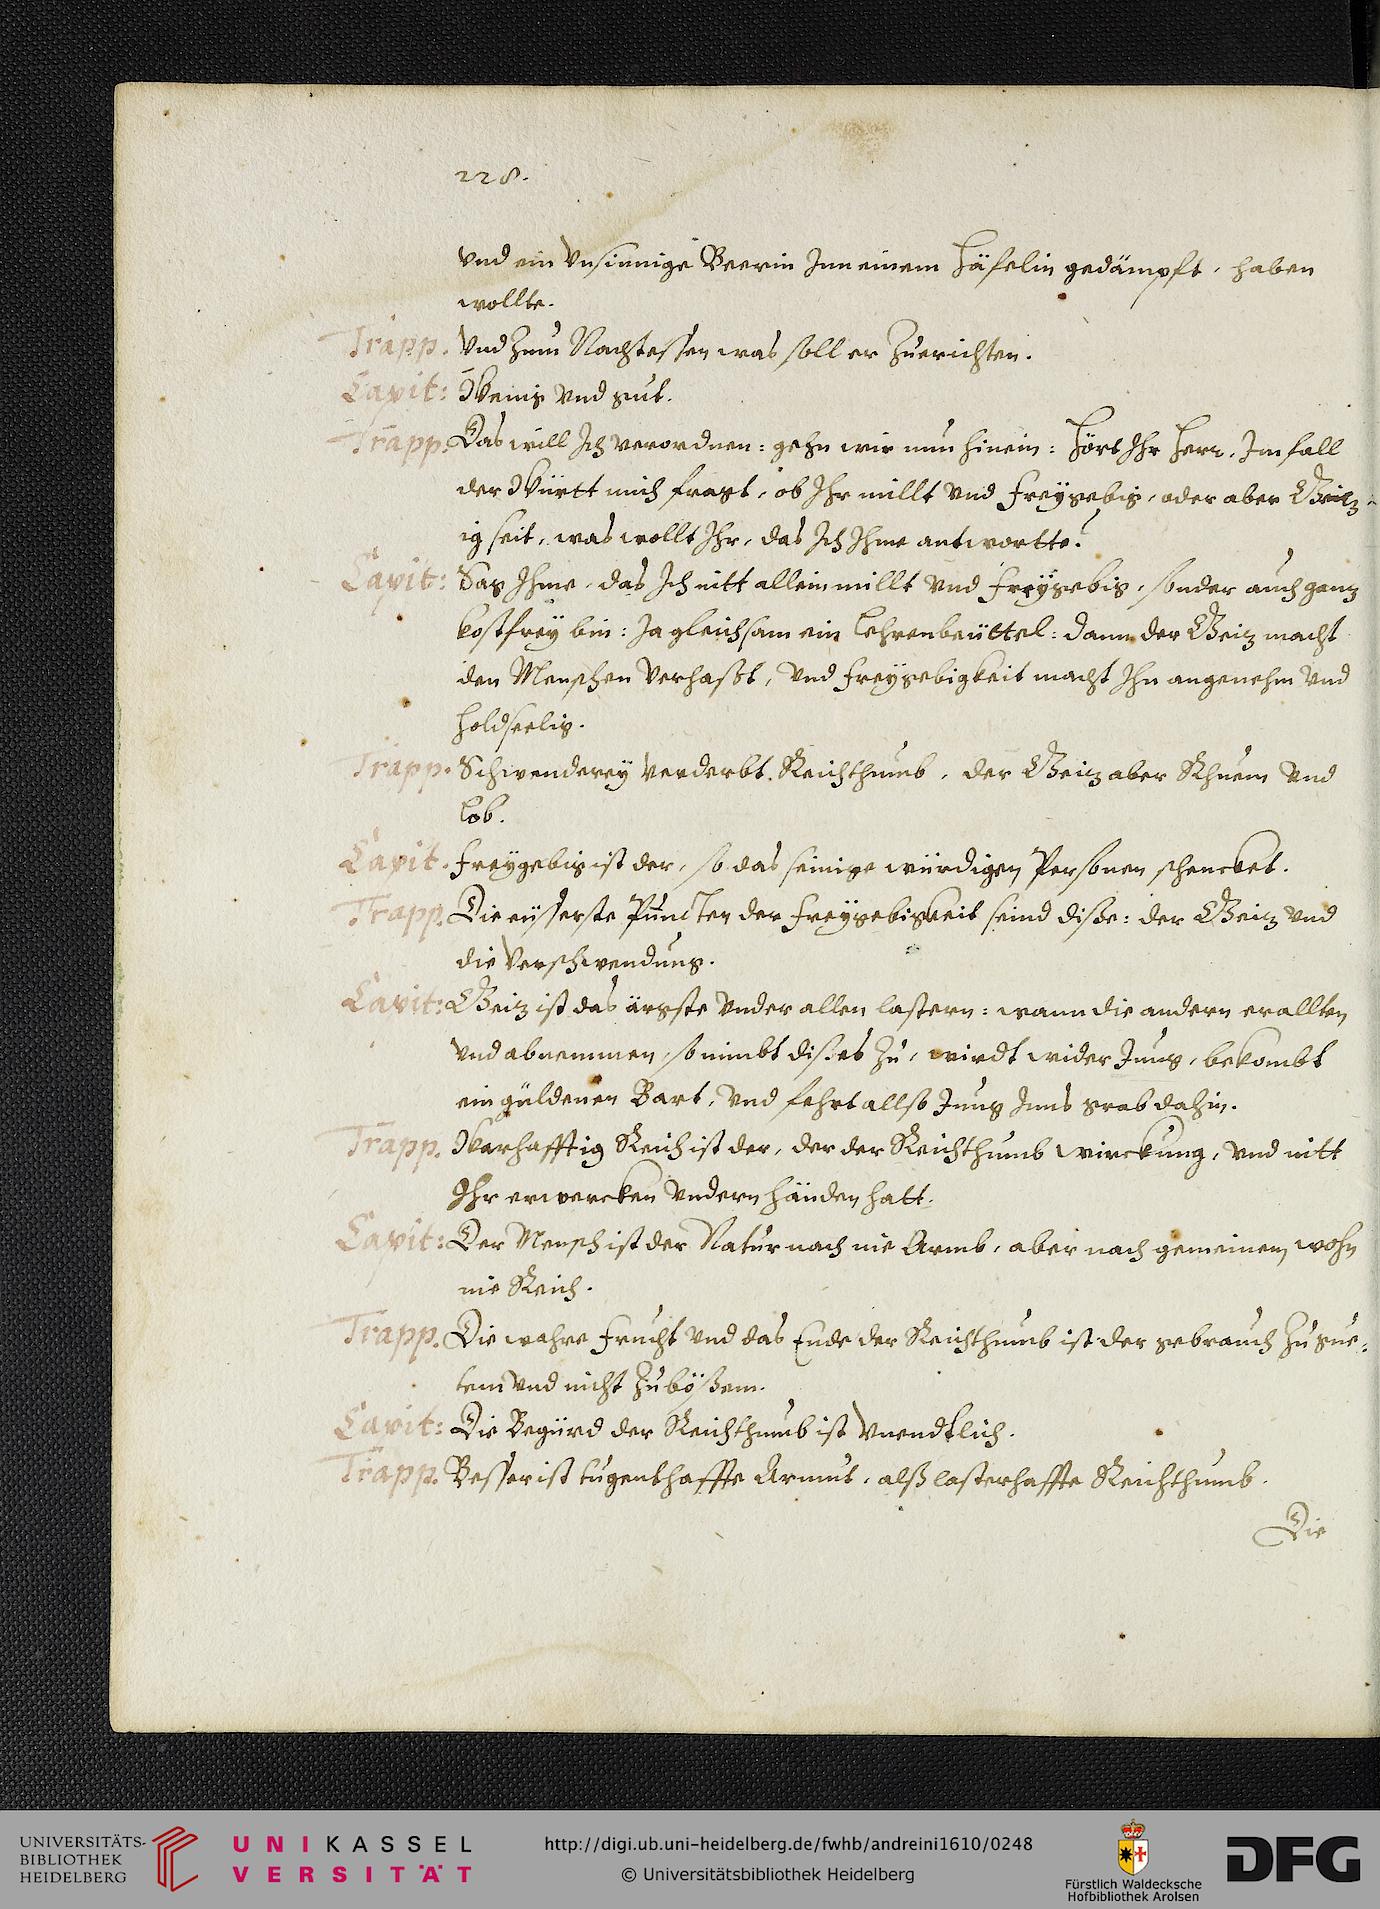 228.
vnd ein Vnsinnige Beerin Inn einem Häfelin gedämpft, haben
wollte.
Trapp. Vnd Zum Nachtessen was soll er Zuerichten.
Capit: Wenig vnd gut.
Trapp: Das will Ich verordnen: gehn wir nun hinein: Hört Ihr Herr, Im fall
der Württ mich fragt, ob Ihr millt vnd freÿgebig, oder aber Geitz-
ig seit, was wollt Ihr, das Ich Ihme antwortte?
Capit: Sag Ihme, das Ich nitt allein millt vnd freÿgebig, sonder auch gantz
kostfreÿ bin: Ja gleichsam ein Lehrenbeüttel: dann der Geitz macht
den Menschen Verhaßt, Vnd freÿgebigkeit macht Ihn angenehm vnd
holdseelig.
Trapp. Schwendereÿ Verderbt Reichthumb, der Geitz aber Rhuem vnd
Lob.
Capit. freÿgebig ist der, so das seinige würdigen Personen schencket.
Trapp. Die eüsserste Puncten der freÿgebigkeit seind diße: der Geitz vnd
die Verschwendung.
Capit: Geitz ist das ärgste vnder allen lastern: wann die andern erallten
vnd abnemmen, so nimbt dißes Zu, wirdt wider Jung, bekombt
ein güldenen Bart, Vnd fehrt allso Jung Inns grab dahin.
Trapp. Warhafftig Reich ist der, der der Reichthumb wirckung, vnd nitt
Ihr erwercken vndern händen hatt.
Capit: Der Mensch ist der Natur nach nie Armb, aber nach gemeinem wohn
nie Reich.
Trapp. Die wahre Frucht vnd das Ende der Reichthumb ist der gebrauch Zu gue-
tem vnd nicht Zu bößem.
Capit: Die Begürd der Reichthumb ist Vnendtlich.
Trapp. Besser ist tugenthaffte Armut, alß lasterhaffte Reichthumb.
Die
UNIVERSITÄTS-
BIBLIOTHEK
HEIDELBERG
UNIKASSEL
VERSITÄT
http://digi.ub.uni-heidelberg.de/fwhb/andreini1610/0248
© Universitätsbibliothek Heidelberg
Fürstlich Waldecksche
Hofbibliothek Arolsen
DFG